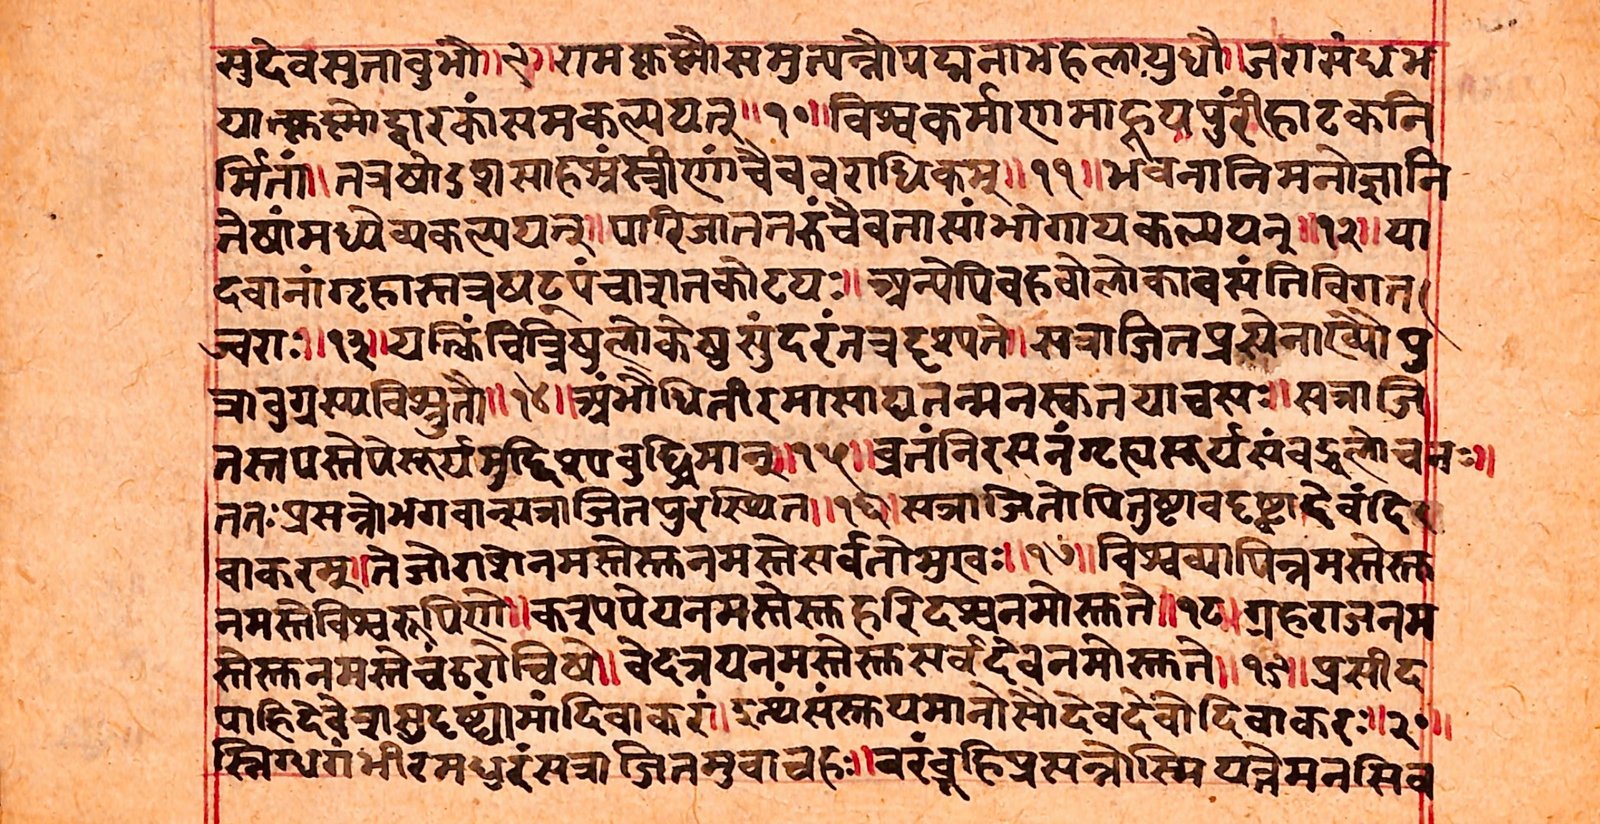 सुदेवसुतावुभौ॥९॥रामकृष्णौसमुत्पन्नौपद्मनाभहलायुधौ॥जरासंधभ
यात्कृष्णोद्वारकांसमकल्पयत्॥१०॥विश्वकर्माणमाहूयपुरींहाटकनि
र्मितां॥तत्रषोडशसाहस्रंस्त्रीणांचैववराधिकम्॥११॥भवनानिमनोज्ञानि
तेषांमध्येव्यकल्पयत्॥पारिजाततरुंचैवतासांभोगायकल्पयत्॥१२॥या
दवानांगृहास्तत्रषट्पंचाशतकोटयः॥अन्येपिबहवोलोकावसंतिविगत
ज्वराः॥१३॥यत्किंचित्त्रिषुलोकेषुसुंदरंतत्रदृश्यते॥सत्राजितप्रसेनाख्यौपु
त्रावुग्रस्यविश्रुतौ॥१४॥अंभौधितीरमासाद्यतन्मनस्कतयाचसः॥सत्राजि
तस्तपस्तेपेसूर्यमुद्दिश्यबुद्धिमान्॥१५॥व्रतंनिरसनंगृह्यसूर्यसंबद्धलोचनः॥
ततःप्रसन्नोभगवान्सत्राजितपुरस्थित॥१६॥सत्राजितोपितुष्टावदृष्ट्वादेवंदि
वाकरम्॥तेजोराशेनमस्तेस्तुनमस्तेसर्वतोमुखः॥१७॥विश्वव्यापिन्नमस्तेस्तु
नमस्तेविश्वरूपिणे॥कश्यपेयनमस्तेस्तुहरिदश्वनमोस्तुते॥१८॥ग्रहराजनम
स्तेस्तुनमस्तेचंडरोचिषे॥वेदत्रयनमस्तेस्तुसर्वदेवनमोस्तुते॥१९॥प्रसीद
पाहिदेवेशसुदृष्ट्यांमांदिवाकरं॥इत्थंसंस्तुयमानोसौदेवदेवोदिवाकरः॥२०॥
स्निग्धगंभीरमधुरंसत्राजितमुवाचहः॥वरंब्रूहिप्रसन्नोस्मियत्तेमनसिव